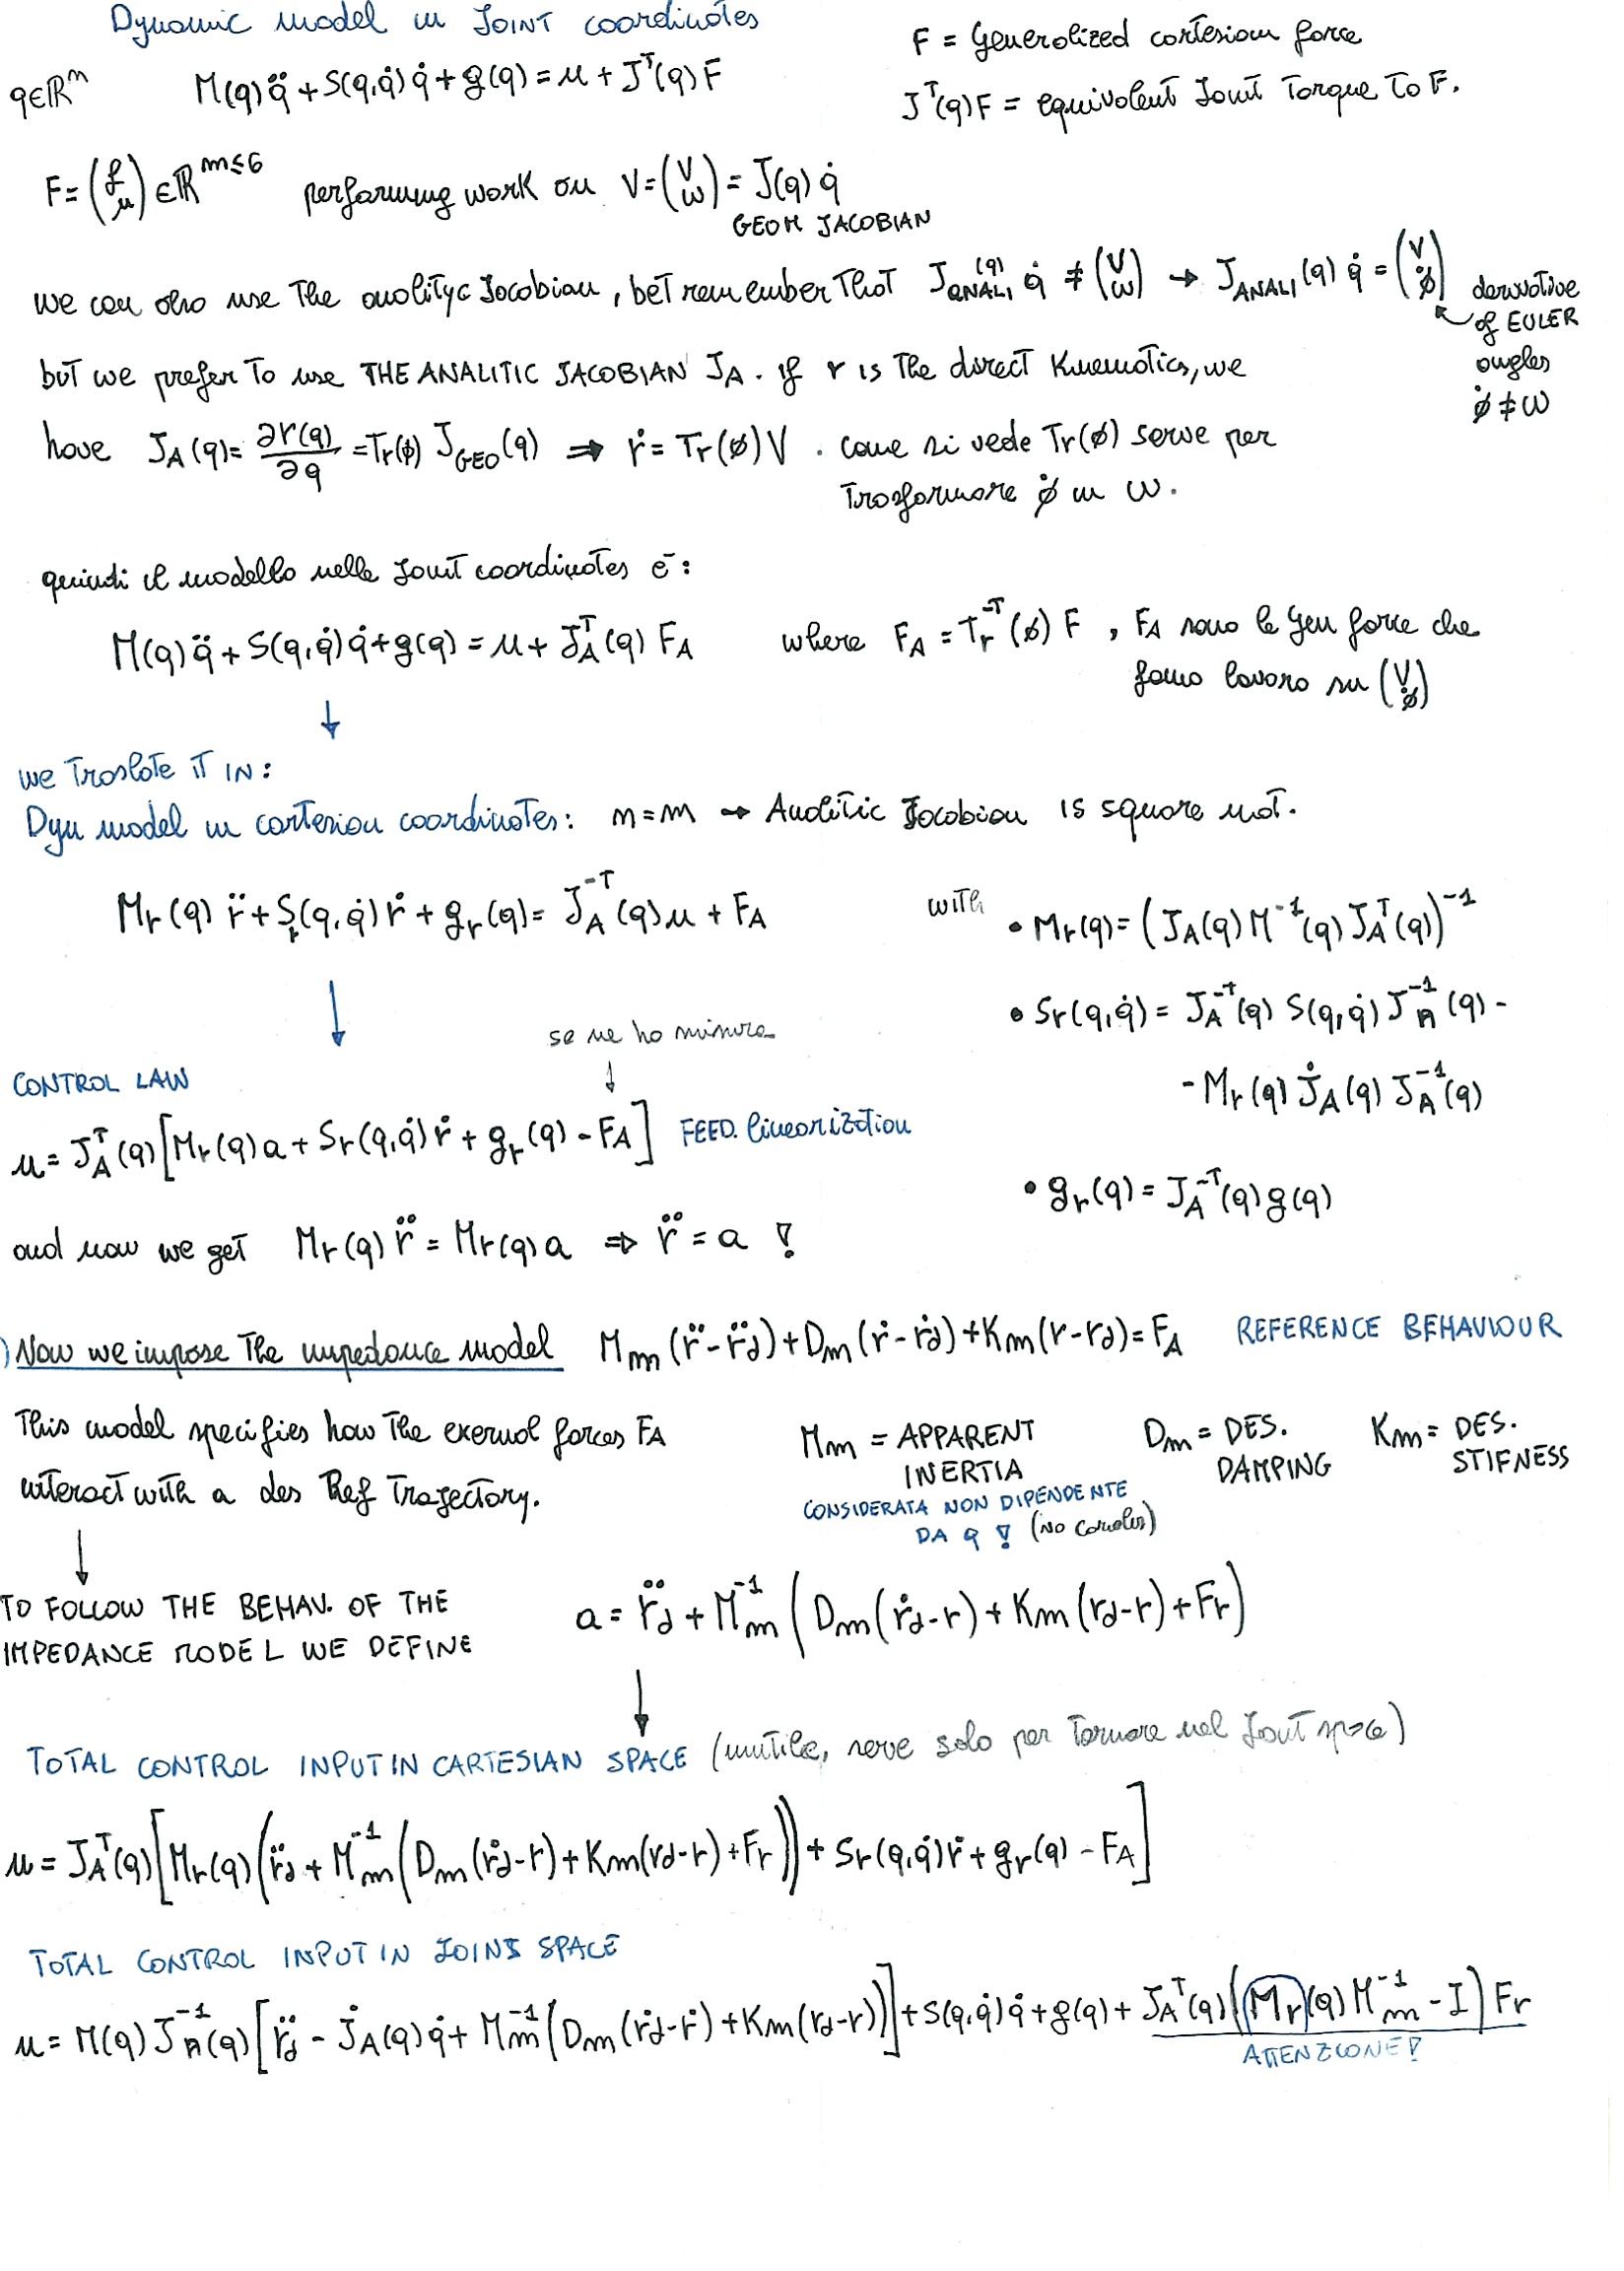 Dynamic model in JOINT coordinates
F = Generalized cartesian force
q∈ℝⁿ M(q)q̈ + S(q,q̇)q̇ + g(q) = u + Jᵀ(q)F
Jᵀ(q)F = equivalent Joint Torque To F.
F = (f μ) ∈ ℝ^m≤6 performing work on V = (v ω) = J(q)q̇
GEOM JACOBIAN
we can also use The analityc Jacobian, bet remember That J_ANALI(q) q̇ ≠ (v ω) → J_ANALI(q) q̇ = (v φ̇) derivative
of EULER
angles
φ̇ ≠ ω
but we prefer To use THE ANALITIC JACOBIAN J_A. if r is The direct Kinematics, we
have J_A(q) = ∂r(q)/∂q = Tr(φ) J_GEO(q) ⇒ ṙ = Tr(φ)V. come si vede Tr(φ) serve per
Trasformare φ̇ in ω.
quindi il modello nelle Joint coordinates è:
M(q)q̈ + S(q,q̇)q̇ + g(q) = u + J_Aᵀ(q) F_A where F_A = Tr^-T(φ) F, F_A sono le gen force che
fanno lavoro su (v φ̇)
↓
we Translate iT IN:
Dyn model in cartesian coordinates: n=m → Analitic Jacobian is square mat.
Mr(q) r̈ + Sr(q,q̇)ṙ + gr(q) = J_A^-T(q)u + F_A with • Mr(q) = (J_A(q) M⁻¹(q) J_Aᵀ(q))⁻¹
• Sr(q,q̇) = J_A^-T(q) S(q,q̇) J_A⁻¹(q) -
- Mr(q) J̇_A(q) J_A⁻¹(q)
• gr(q) = J_A^-T(q)g(q)
↓
se ne ho misura
↓
CONTROL LAW
u = J_Aᵀ(q)[Mr(q)a + Sr(q,q̇)ṙ + gr(q) - F_A] FEED. linearization
and now we get Mr(q) r̈ = Mr(q)a ⇒ r̈ = a !
) Now we impose The impedance model Mm(r̈-r̈d) + Dm(ṙ-ṙd) + Km(r-rd) = F_A REFERENCE BEHAVIOUR
This model specifies how The exernal forces F_A
interact with a des Ref Trajectory.
Mm = APPARENT INERTIA
CONSIDERATA NON DIPENDENTE
DA q ! (NO Coriolis)
Dm = DES. DAMPING
Km = DES. STIFNESS
↓
TO FOLLOW THE BEHAV. OF THE
IMPEDANCE MODEL WE DEFINE
a = r̈d + Mm⁻¹(Dm(ṙd-r) + Km(rd-r) + Fr)
↓
TOTAL CONTROL INPUT IN CARTESIAN SPACE (inutile, serve solo per Tornare nel Joint space)
u = J_Aᵀ(q)[Mr(q)(r̈d + Mm⁻¹(Dm(ṙd-r) + Km(rd-r) + Fr)) + Sr(q,q̇)ṙ + gr(q) - F_A]
TOTAL CONTROL INPUT IN JOINT SPACE
u = M(q) J_A⁻¹(q)[r̈d - J̇_A(q)q̇ + Mm⁻¹(Dm(ṙd-ṙ) + Km(rd-r))] + S(q,q̇)q̇ + g(q) + J_Aᵀ(q)(Mr(q)Mm⁻¹ - I)Fr
ATTENZIONE!